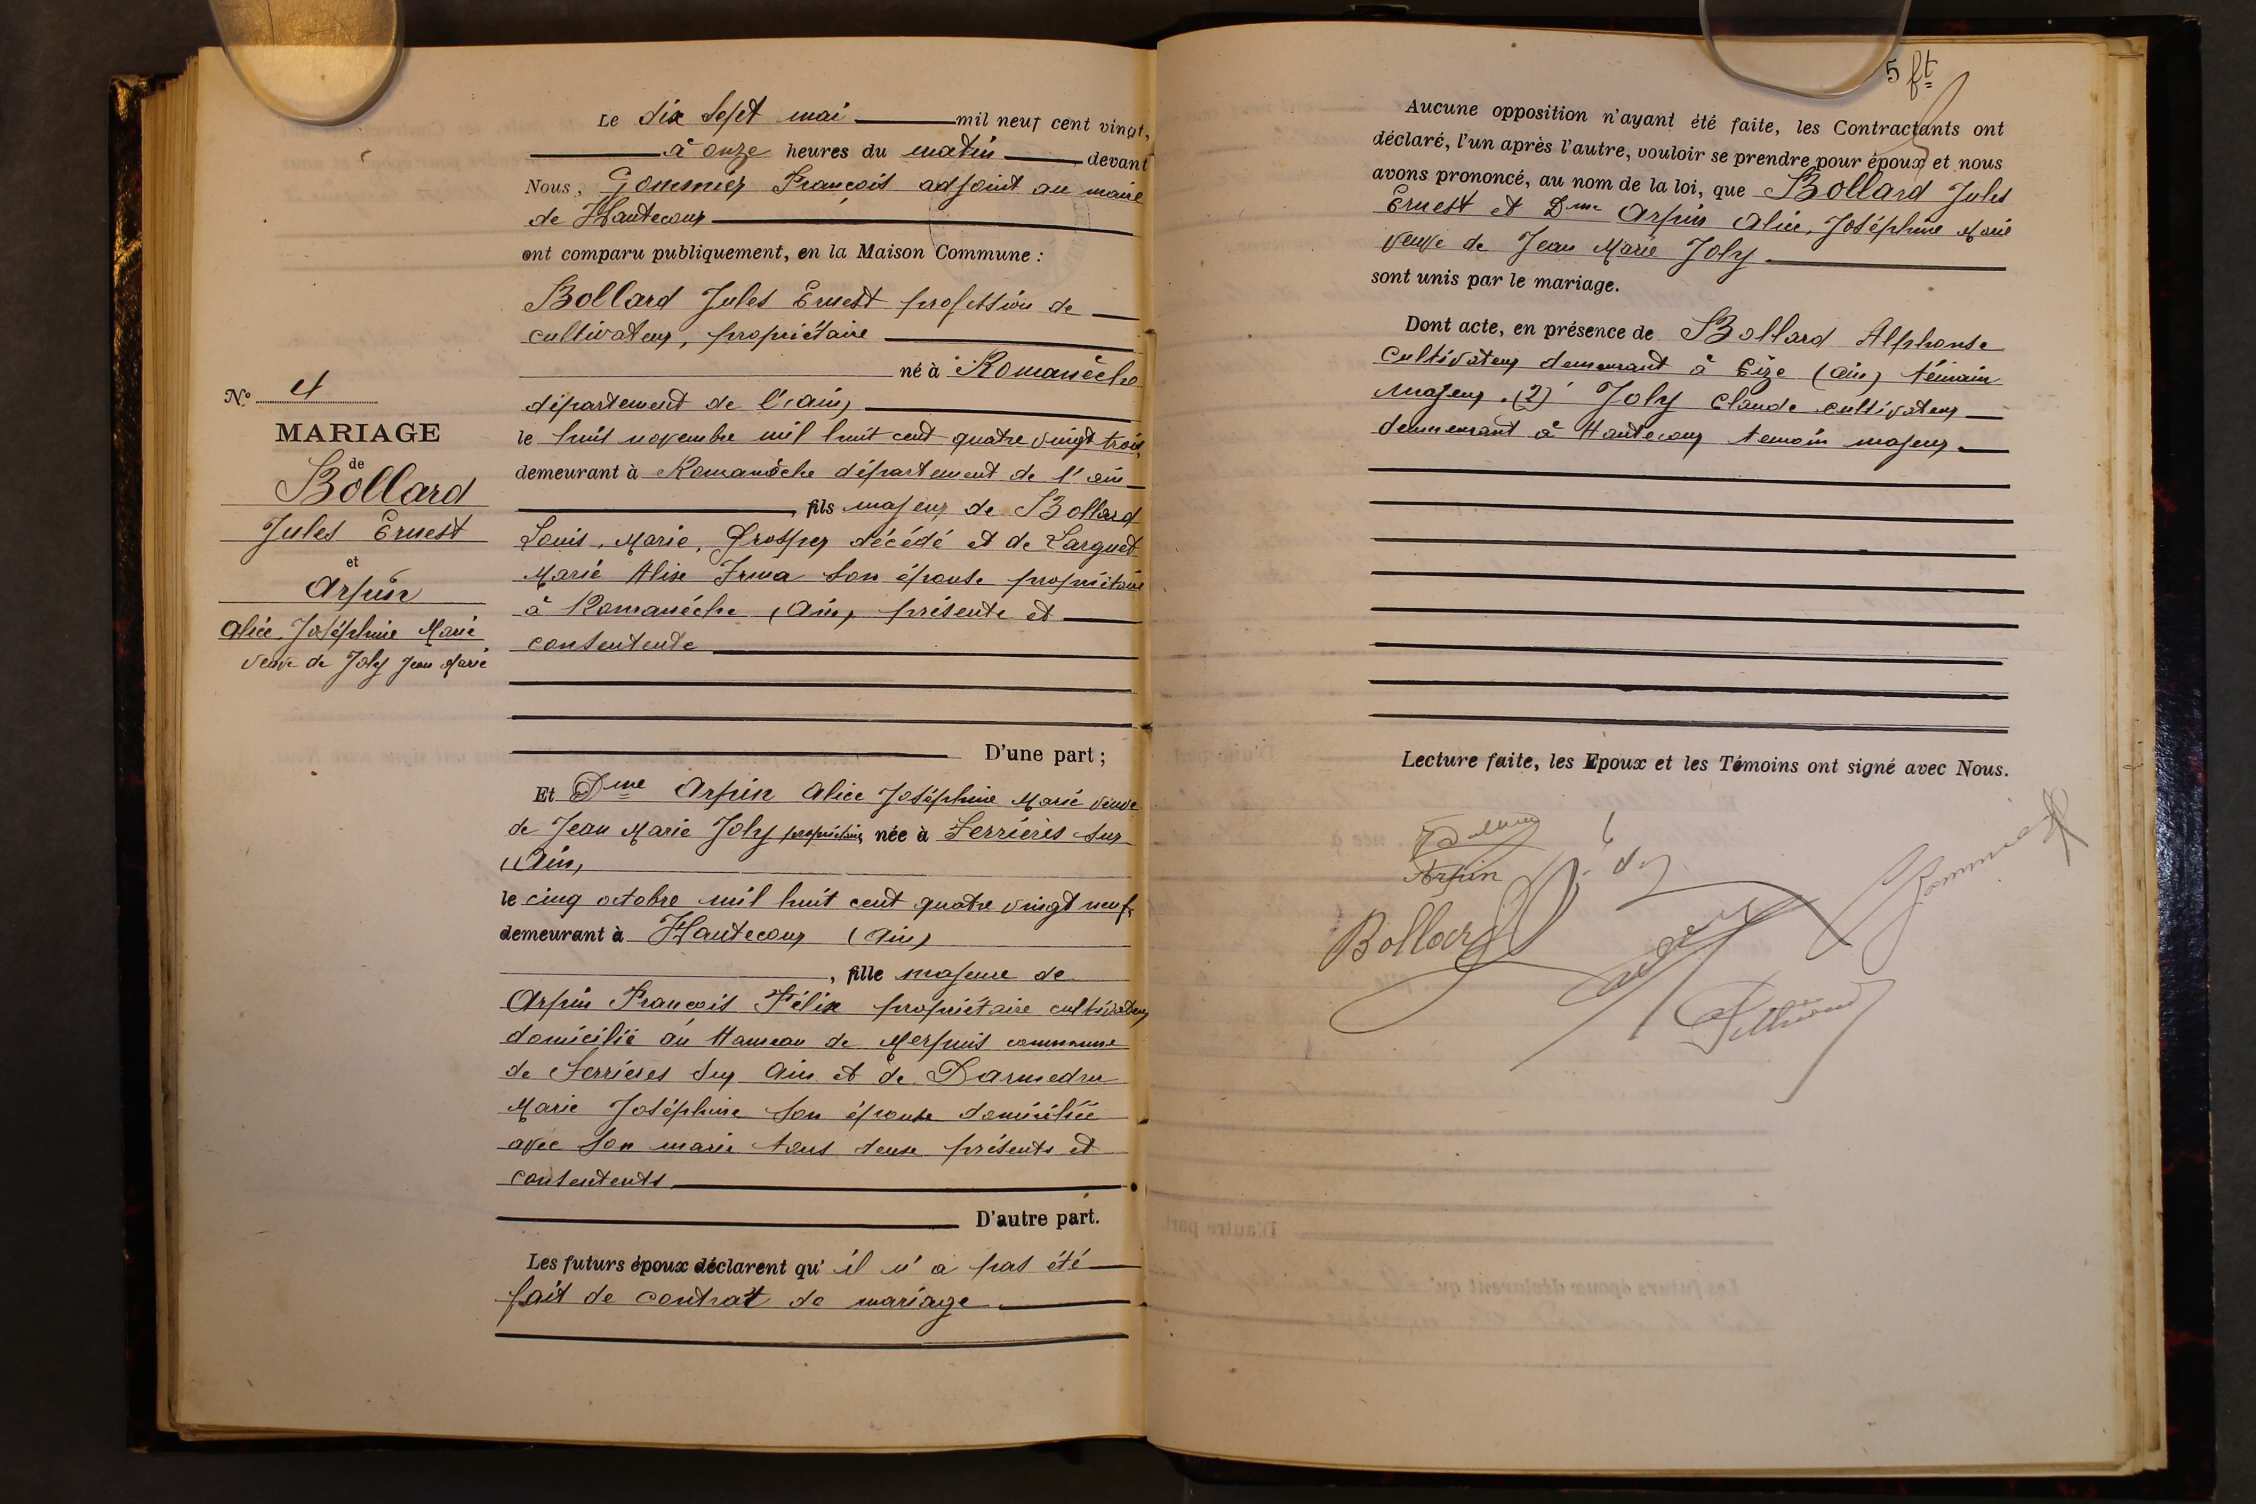 N.º 4
MARIAGE
de
Bollard
Jules Ernest
et
Arpin
Alice Joséphine Marie
veuve de Joly Jean Marie
Le dix sept mai mil neuf cent vingt,
à onze heures du matin devant
Nous, Gommier François adjoint au maire
de Hautecour
ont comparu publiquement, en la Maison Commune :
Bollard Jules Ernest profession de
cultivateur, propriétaire
né à Romanèche
département de l'(ain)
le huit novembre mil huit cent quatre vingt trois,
demeurant à Romanèche département de l'ain
, fils majeur de Bollard
Louis, Marie, Prosper décédé et de Larguet
Marie Alise Irma son épouse propriétaire
à Romanèche (Ain) présente et
consentente
D'une part ;
Et Dme Arpin Alice Joséphine Marie veuve
de Jean Marie Joly propriétaire, née à Serrières sur
(Ain)
le cinq octobre mil huit cent quatre vingt neuf,
demeurant à Hautecour (Ain)
, fille majeure de
Arpin François Félix propriétaire cultivateur
domicilié au Hameau de Merpuis commune
de Serrières sur Ain et de Darmedru
Marie Joséphine son épouse domiciliée
avec son mari tous deux présents et
consentents
D'autre part.
Les futurs époux déclarent qu'il n'a pas été
fait de contrat de mariage
5 ft
Aucune opposition n'ayant été faite, les Contractants ont
déclaré, l'un après l'autre, vouloir se prendre pour époux et nous
avons prononcé, au nom de la loi, que Bollard Jules
Ernest et Dme Arpin Alice, Joséphine Marie
veuve de Jean Marie Joly
sont unis par le mariage.
Dont acte, en présence de Bollard Alphonse
cultivateur demeurant à Cize (ain) témoin
majeur. (2) Joly Claude cultivateur
demeurant à Hautecour temoin majeur.
Lecture faite, les Epoux et les Témoins ont signé avec Nous.
Arpin
Bollard
Gommier